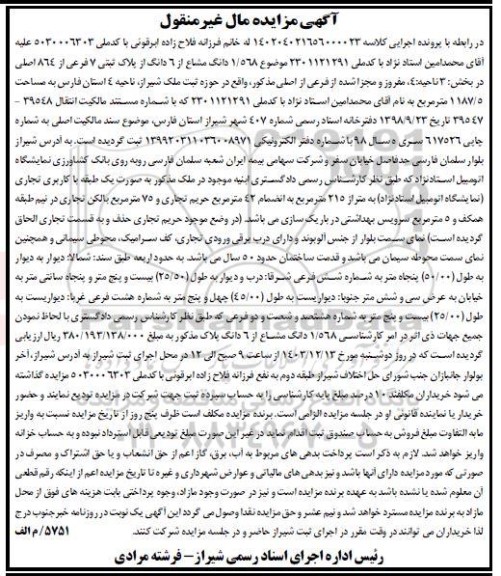 آگهی مزایده مال غیرمنقول
در رابطه با پرونده اجرایی کلاسه ۱۴۰۲۰۴۰۲۱۶۵۶۰۰۰۰۲۳ له خانم فرزانه فلاح زاده ابرقوئی با کدملی ۵۰۳۰۰۰۶۳۰۳ علیه
آقای محمدامین استاد نژاد با کدملی ۲۳۰۱۱۲۱۲۹۱ موضوع ۱/۵۶۸ دانگ مشاع از ۶ دانگ از پلاک ثبتی ۷ فرعی از ۸۶۴ اصلی
در بخش: ۳ ناحیه: ۴، مفروز و مجزا شده از فرعی از اصلی مذکور، واقع در حوزه ثبت ملک شیراز، ناحیه ۴ استان فارس به مساحت
۱۱۸۷/۵ مترمربع به نام آقای محمدامین استاد نژاد با کدملی ۲۳۰۱۱۲۱۲۹۱ که با شماره مستند مالکیت انتقال ۳۹۵۴۸ -
۳۹۵۴۷ تاریخ ۱۳۹۸/۹/۲۳ دفترخانه اسناد رسمی شماره ۴۰۷ شهر شیراز استان فارس، موضوع سند مالکیت اصلی به شماره
چاپی ۶۱۷۵۲۶ سری ه سال ۹۸ با شماره دفتر الکترونیکی ۱۳۹۹۲۰۳۱۱۰۳۶۰۰۸۹۷۱ ثبت گردیده است. به آدرس شیراز
بلوار سلمان فارسی حدفاصل خیابان سفر و شرکت سهامی بیمه ایران شعبه سلمان فارسی روبه روی بانک کشاورزی نمایشگاه
اتومبیل استادنژاد که طبق نظر کارشناس رسمی دادگستری ابنیه موجود در ملک مذکور به صورت یک طبقه با کاربری تجاری
(نمایشگاه اتومبیل استادنژاد) به متراژ ۲۱۵ مترمربع به انضمام ۴۲ مترمربع حریم تجاری و ۷۵ مترمربع بالکن تجاری در نیم طبقه
همکف و ۵ مترمربع سرویس بهداشتی در باریک سازی می باشد. (در وضع موجود حریم تجاری حذف و به قسمت تجاری الحاق
گردیده است) نمای سمت بلوار از جنس آلوبوند و دارای درب برقی ورودی تجاری، کف سرامیک، محوطه سیمانی و همچنین
نمای سمت محوطه سیمان می باشد و قدمت ساختمان حدود ۵۰ سال می باشد. به حدود اربعه طبق سند: شمالا: دیوار به دیوار
به طول (۵۰/۰۰) پنجاه متر به شماره شش فرعی شرقا: درب و دیوار به طول (۲۵/۵۰) بیست و پنج متر و پنجاه سانتی متر به
خیابان به عرض سی و شش متر جنوبا: دیواریست به طول (۴۵/۰۰) چهل و پنج متر به شماره هشت فرعی غربا: دیواریست به
طول (۲۵/۰۰) بیست و پنج متر به شماره هشتصد و شصت و دو فرعی که طبق نظر کارشناس رسمی دادگستری با لحاظ نمودن
جمیع جهات ذی اثر در امر کارشناسی ۱/۵۶۸ دانگ مشاع از ۶ دانگ پلاک مذکور به مبلغ ۳۸۰/۱۹۳/۱۳۸/۰۰۰ ریال ارزیابی
گردیده است که در روز دوشنبه مورخ ۱۴۰۳/۱۲/۱۳ از ساعت ۹ صبح الی ۱۲ در محل اجرای ثبت شیراز به آدرس شیراز، آخر
بولوار جانبازان جنب شورای حل اختلاف شیراز طبقه دوم به نفع فرزانه فلاح زاده ابرقوئی با کدملی ۵۰۳۰۰۰۶۳۰۳ مزایده گذاشته
می شود خریداران مکلفند ۱۰ درصد مبلغ پایه کارشناسی را به حساب سپرده ثبت جهت شرکت در مزایده تودیع نمایند و حضور
خریدار یا نماینده قانونی او در جلسه مزایده الزامی است. برنده مزایده مکلف است ظرف پنج روز از تاریخ مزایده نسبت به واریز
مابه التفاوت مبلغ فروش به حساب صندوق ثبت اقدام نماید در غیر این صورت مبلغ تودیعی قابل استرداد نبوده و به حساب خزانه
واریز خواهد شد. لازم به ذکر است پرداخت بدهی های مربوط به آب، برق، گاز اعم از حق انشعاب و یا حق اشتراک و مصرف در
صورتی که مورد مزایده دارای آنها باشد و نیز بدهی های مالیاتی و عوارض شهرداری و غیره تا تاریخ مزایده اعم از اینکه رقم قطعی
آن معلوم شده یا نشده باشد به عهده برنده مزایده است و نیز در صورت وجود مازاد، وجوه پرداختی بابت هزینه های فوق از محل
مازاد به برنده مزایده مسترد خواهد شد و نیم عشر و حق مزایده نقدا وصول می گردد این آگهی یک نوبت در روزنامه خبرجنوب درج
لذا خریداران می توانند در وقت مقرر در اجرای ثبت شیراز حاضر و در جلسه مزایده شرکت کنند. ۵۷۵۱/م الف
رئیس اداره اجرای اسناد رسمی شیراز - فرشته مرادی